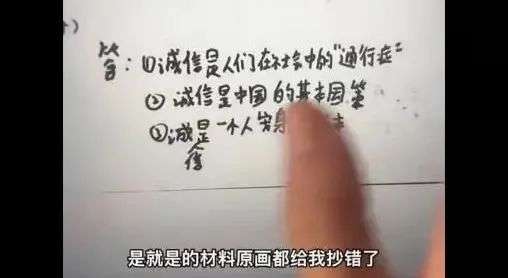 答：①诚信是人们在社会中的“通行症”
②诚信是中国的基本国策
③诚信是一个人安身本
是就是的材料原画都给我抄错了